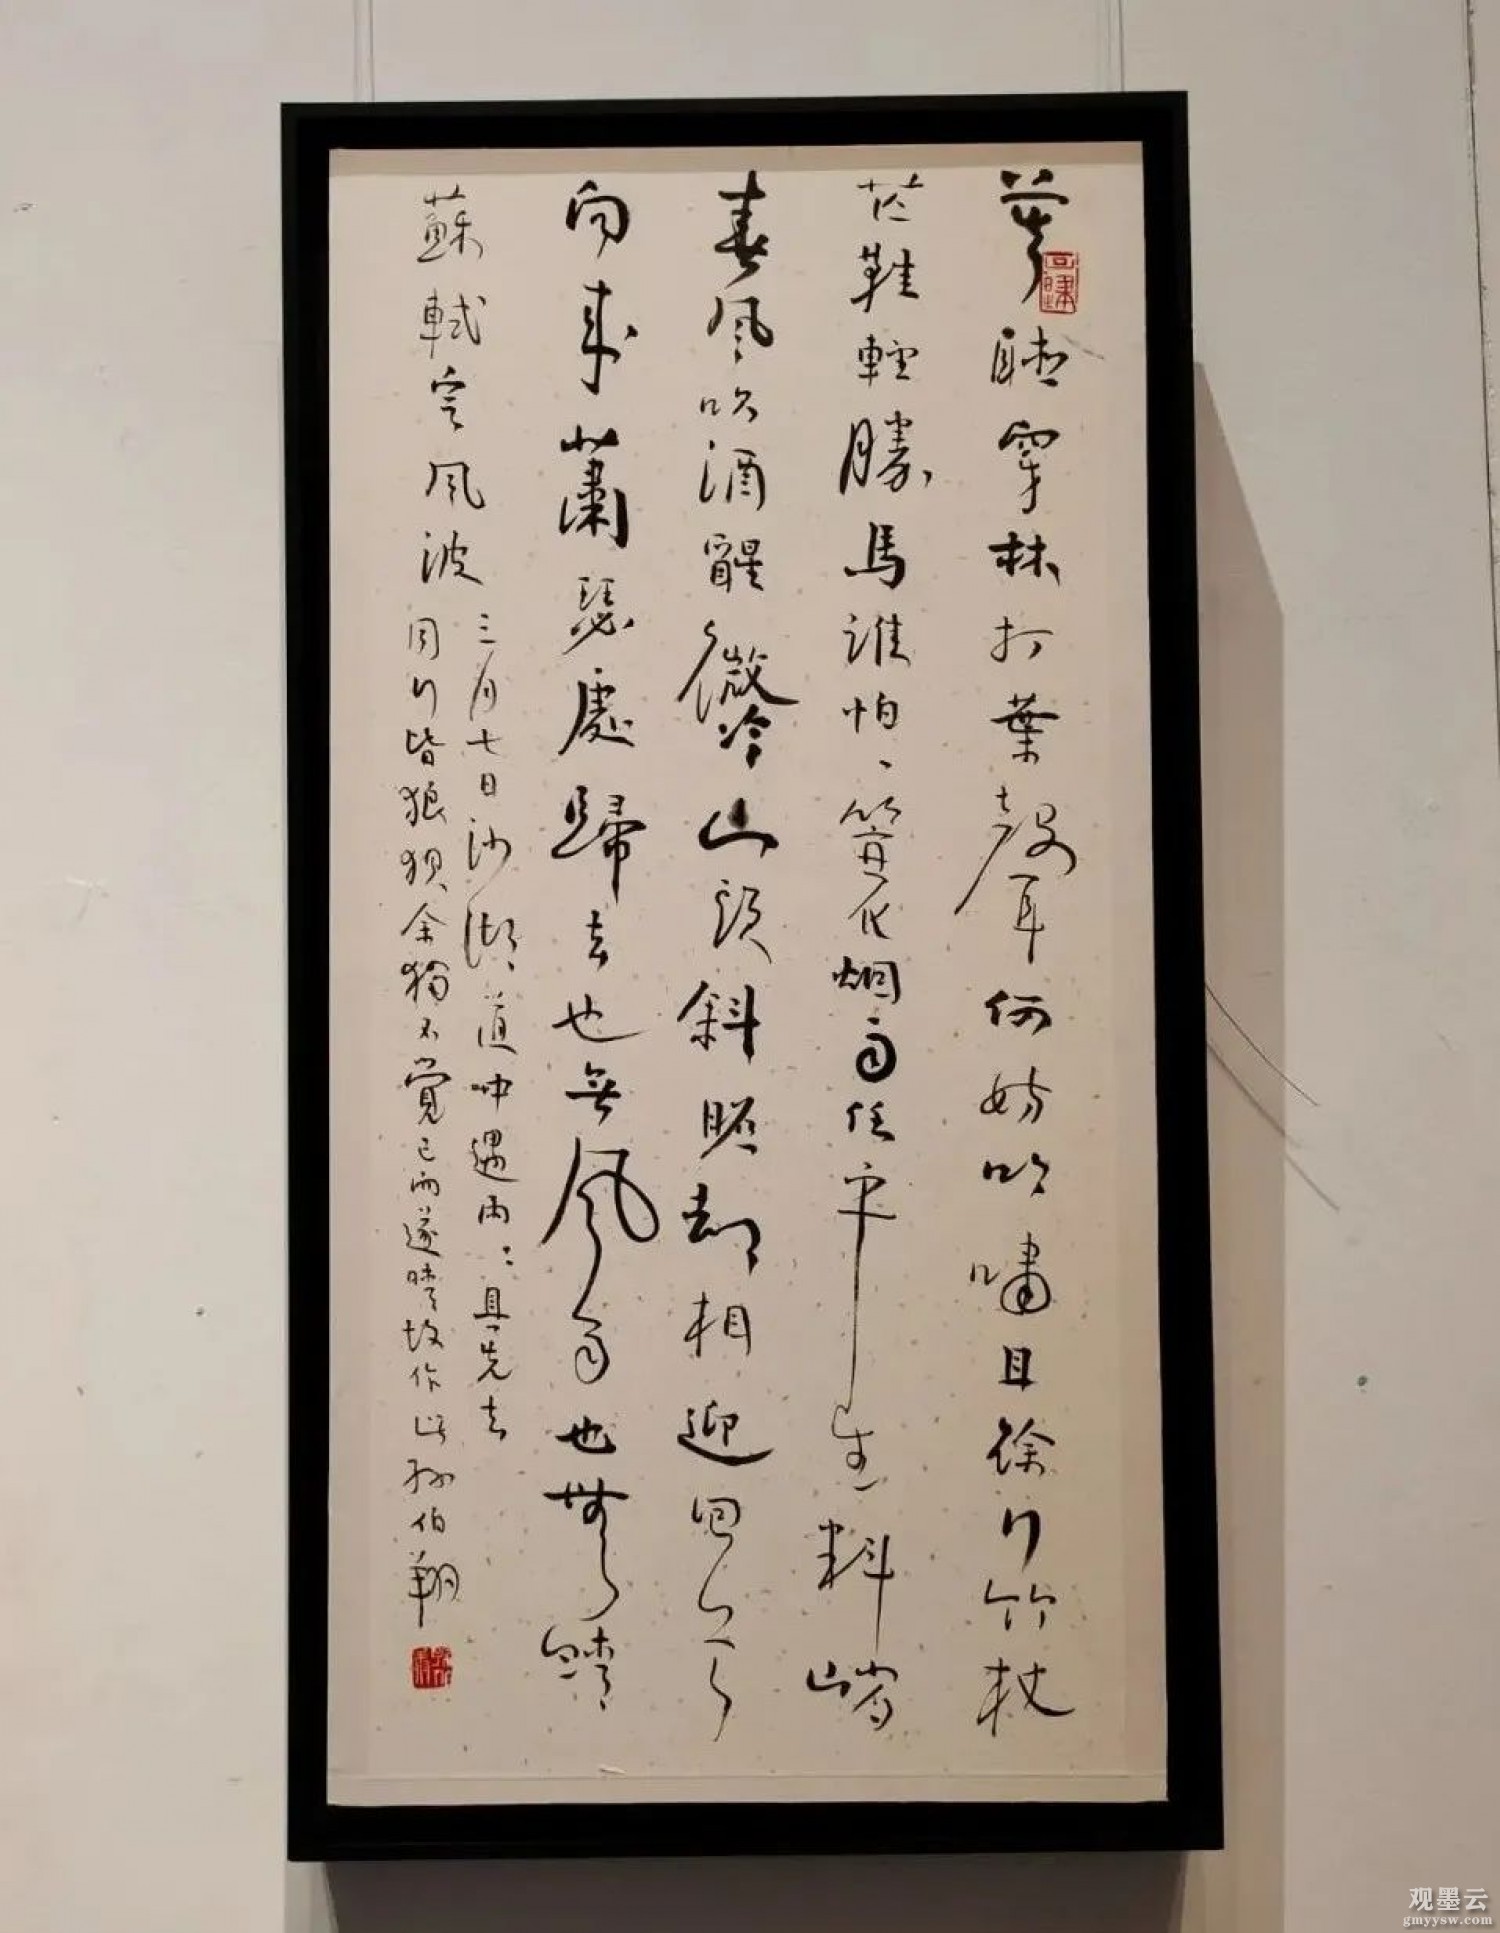 莫聽穿林打葉聲何妨吟嘯且徐行竹杖
芒鞋輕勝馬誰怕、蓑衣烟雨任平生料峭
春風吹酒醒微冷山頭斜照却相迎回首
向來蕭瑟處歸去也無風雨也無晴
蘇軾定風波
三月七日沙湖道中遇雨雨具先去
同行皆狼狽余獨不覺已而遂晴故作此孙伯翔
观墨云
gmyysw.com